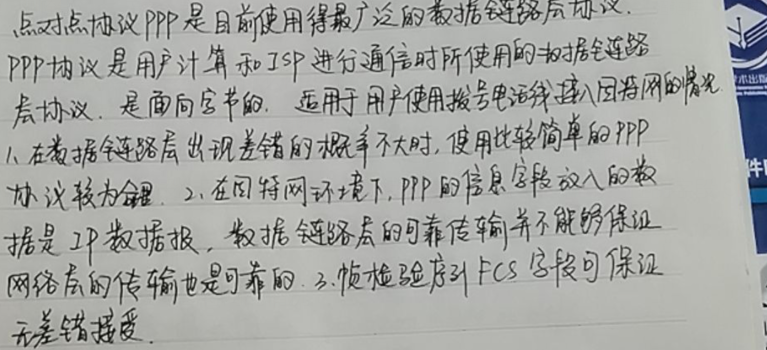 点对点协议PPP是目前使用得最广泛的数据链路层协议.
PPP协议是用户计算和ISP进行通信时所使用的数据链路
层协议.是面向字节的.适用于用户使用拨号电话线接入因特网的情况
1、在数据链路层出现差错的概率不大时,使用比较简单的PPP
协议较为合理 2、在因特网环境下,PPP的信息字段放入的数
据是IP数据报,数据链路层的可靠传输并不能够保证
网络层的传输也是可靠的.3、帧检验序列FCS字段可保证
无差错接受.
术出版
件